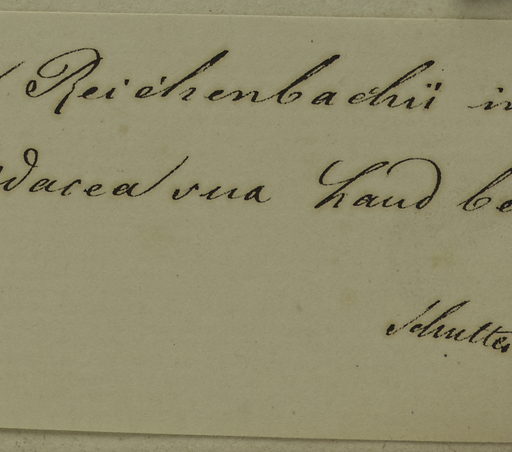 Reichenbachii in
dacea sua haud be
Schultes